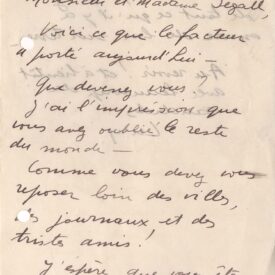 Monsieur et Madame Segall,
Voici ce que le facteur
a porté aujourd'hui —
Que devenez vous
j'ai l'impression que
vous avez oublié le reste
du monde —
Comme vous devez vous
reposer loin des villes,
des journaux et des
tristes amis!
J'espère que vous êtes